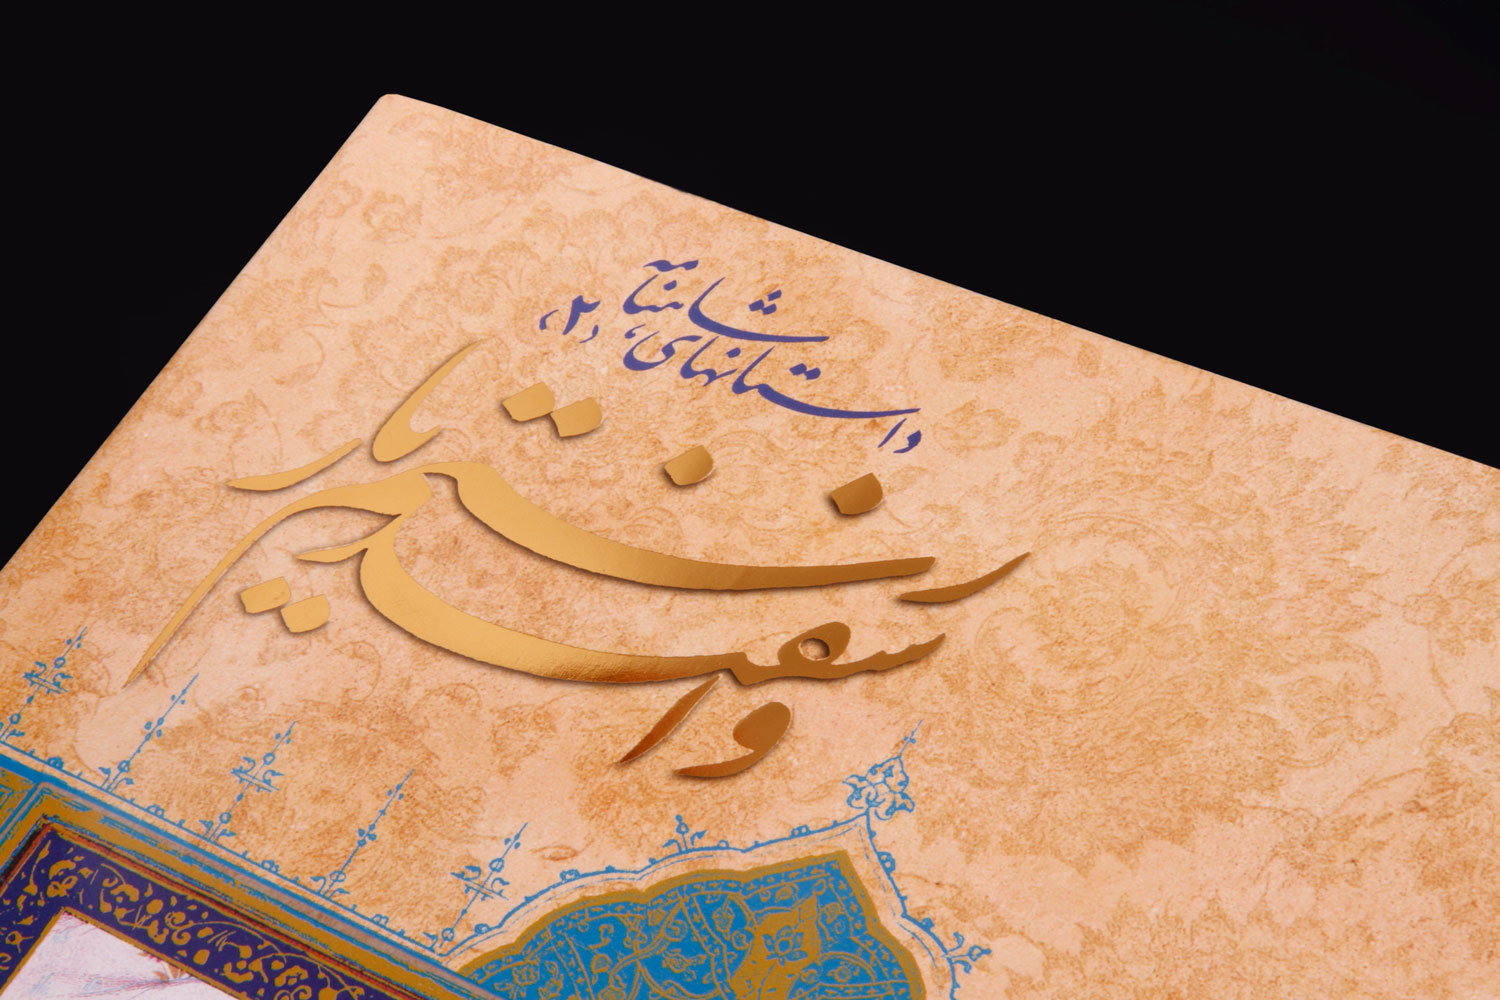 داستانهای شاهنامه «۲»
رستم و اسفندیار